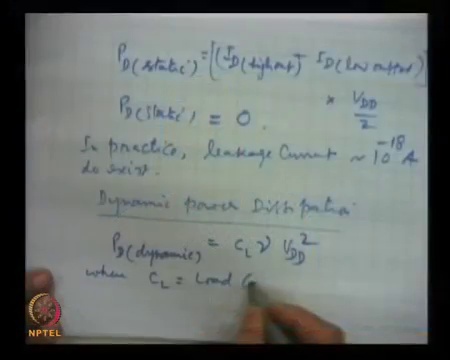 P_D(static) = [(I_D(high out) - I_D(low output)]
P_D(static) = 0. × V_DD/2
In practice, leakage Current ~ 10^-18 A
do exist.
Dynamic power Dissipation
P_D(dynamic) = C_L ν V_DD^2
where C_L = Load C
NPTEL